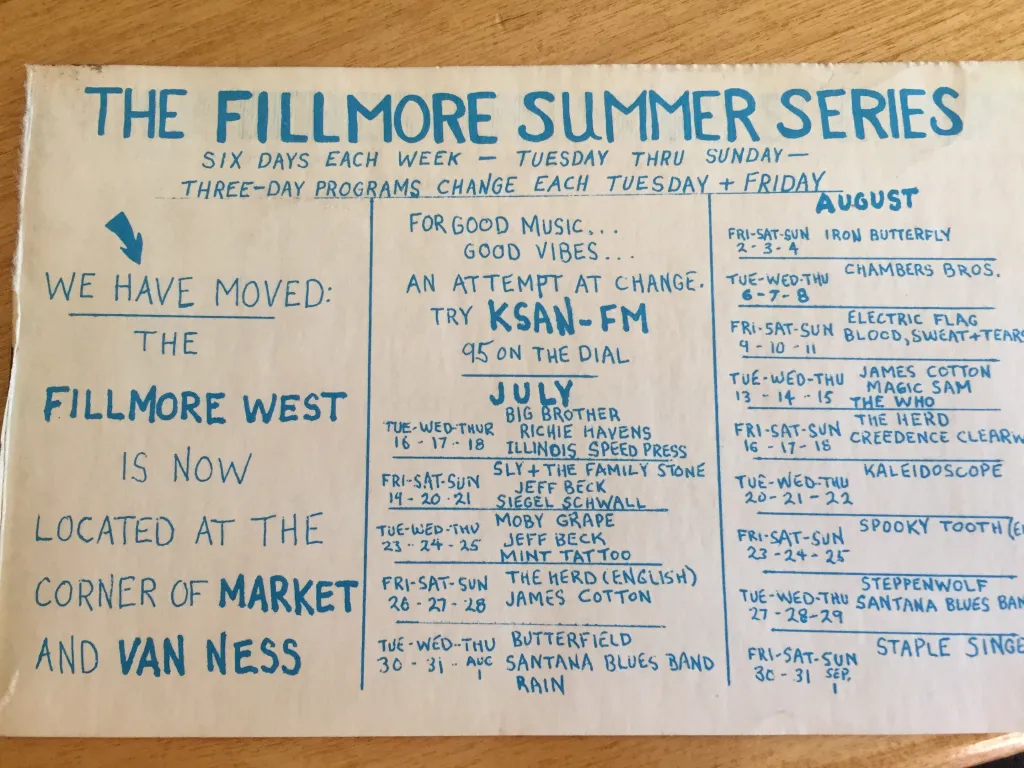 THE FILLMORE SUMMER SERIES
SIX DAYS EACH WEEK — TUESDAY THRU SUNDAY —
THREE-DAY PROGRAMS CHANGE EACH TUESDAY + FRIDAY
WE HAVE MOVED:
THE
FILLMORE WEST
IS NOW
LOCATED AT THE
CORNER OF MARKET
AND VAN NESS
FOR GOOD MUSIC...
GOOD VIBES...
AN ATTEMPT AT CHANGE.
TRY KSAN-FM
95 ON THE DIAL
JULY
BIG BROTHER
TUE-WED-THUR RICHIE HAVENS
16-17-18 ILLINOIS SPEED PRESS
SLY + THE FAMILY STONE
FRI-SAT-SUN JEFF BECK
19-20-21 SIEGEL SCHWALL
MOBY GRAPE
TUE-WED-THU JEFF BECK
23-24-25 MINT TATTOO
FRI-SAT-SUN THE HERD (ENGLISH)
26-27-28 JAMES COTTON
TUE-WED-THU BUTTERFIELD
30-31-AUG 1 SANTANA BLUES BAND
RAIN
AUGUST
FRI-SAT-SUN IRON BUTTERFLY
2-3-4
TUE-WED-THU CHAMBERS BROS.
6-7-8
ELECTRIC FLAG
FRI-SAT-SUN BLOOD, SWEAT + TEARS
9-10-11
JAMES COTTON
TUE-WED-THU MAGIC SAM
13-14-15 THE WHO
THE HERD
FRI-SAT-SUN CREEDENCE CLEARW
16-17-18
KALEIDOSCOPE
TUE-WED-THU
20-21-22
SPOOKY TOOTH (E
FRI-SAT-SUN
23-24-25
STEPPENWOLF
TUE-WED-THU SANTANA BLUES BAN
27-28-29
STAPLE SINGE
FRI-SAT-SUN
30-31 SEP. 1